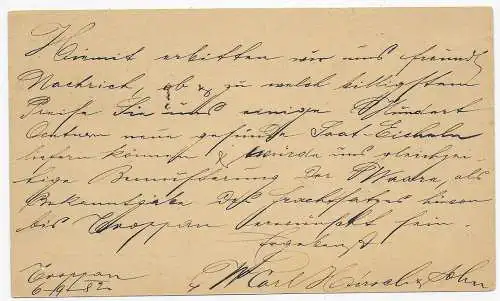 Hiemit erbitten wir uns freundl
Nachricht, ob & zu welch billigstem
Preise Sie uns einige Hundert
Centner neue gesunde Saat-Eicheln
liefern können & würde uns gleichzei-
tige Bemusterung der Waare, als
Bekanntgabe des Frachtsatzes hievon
bis Troppau erwünscht sein.
Ergebenst
Troppau
Carl & Sohn